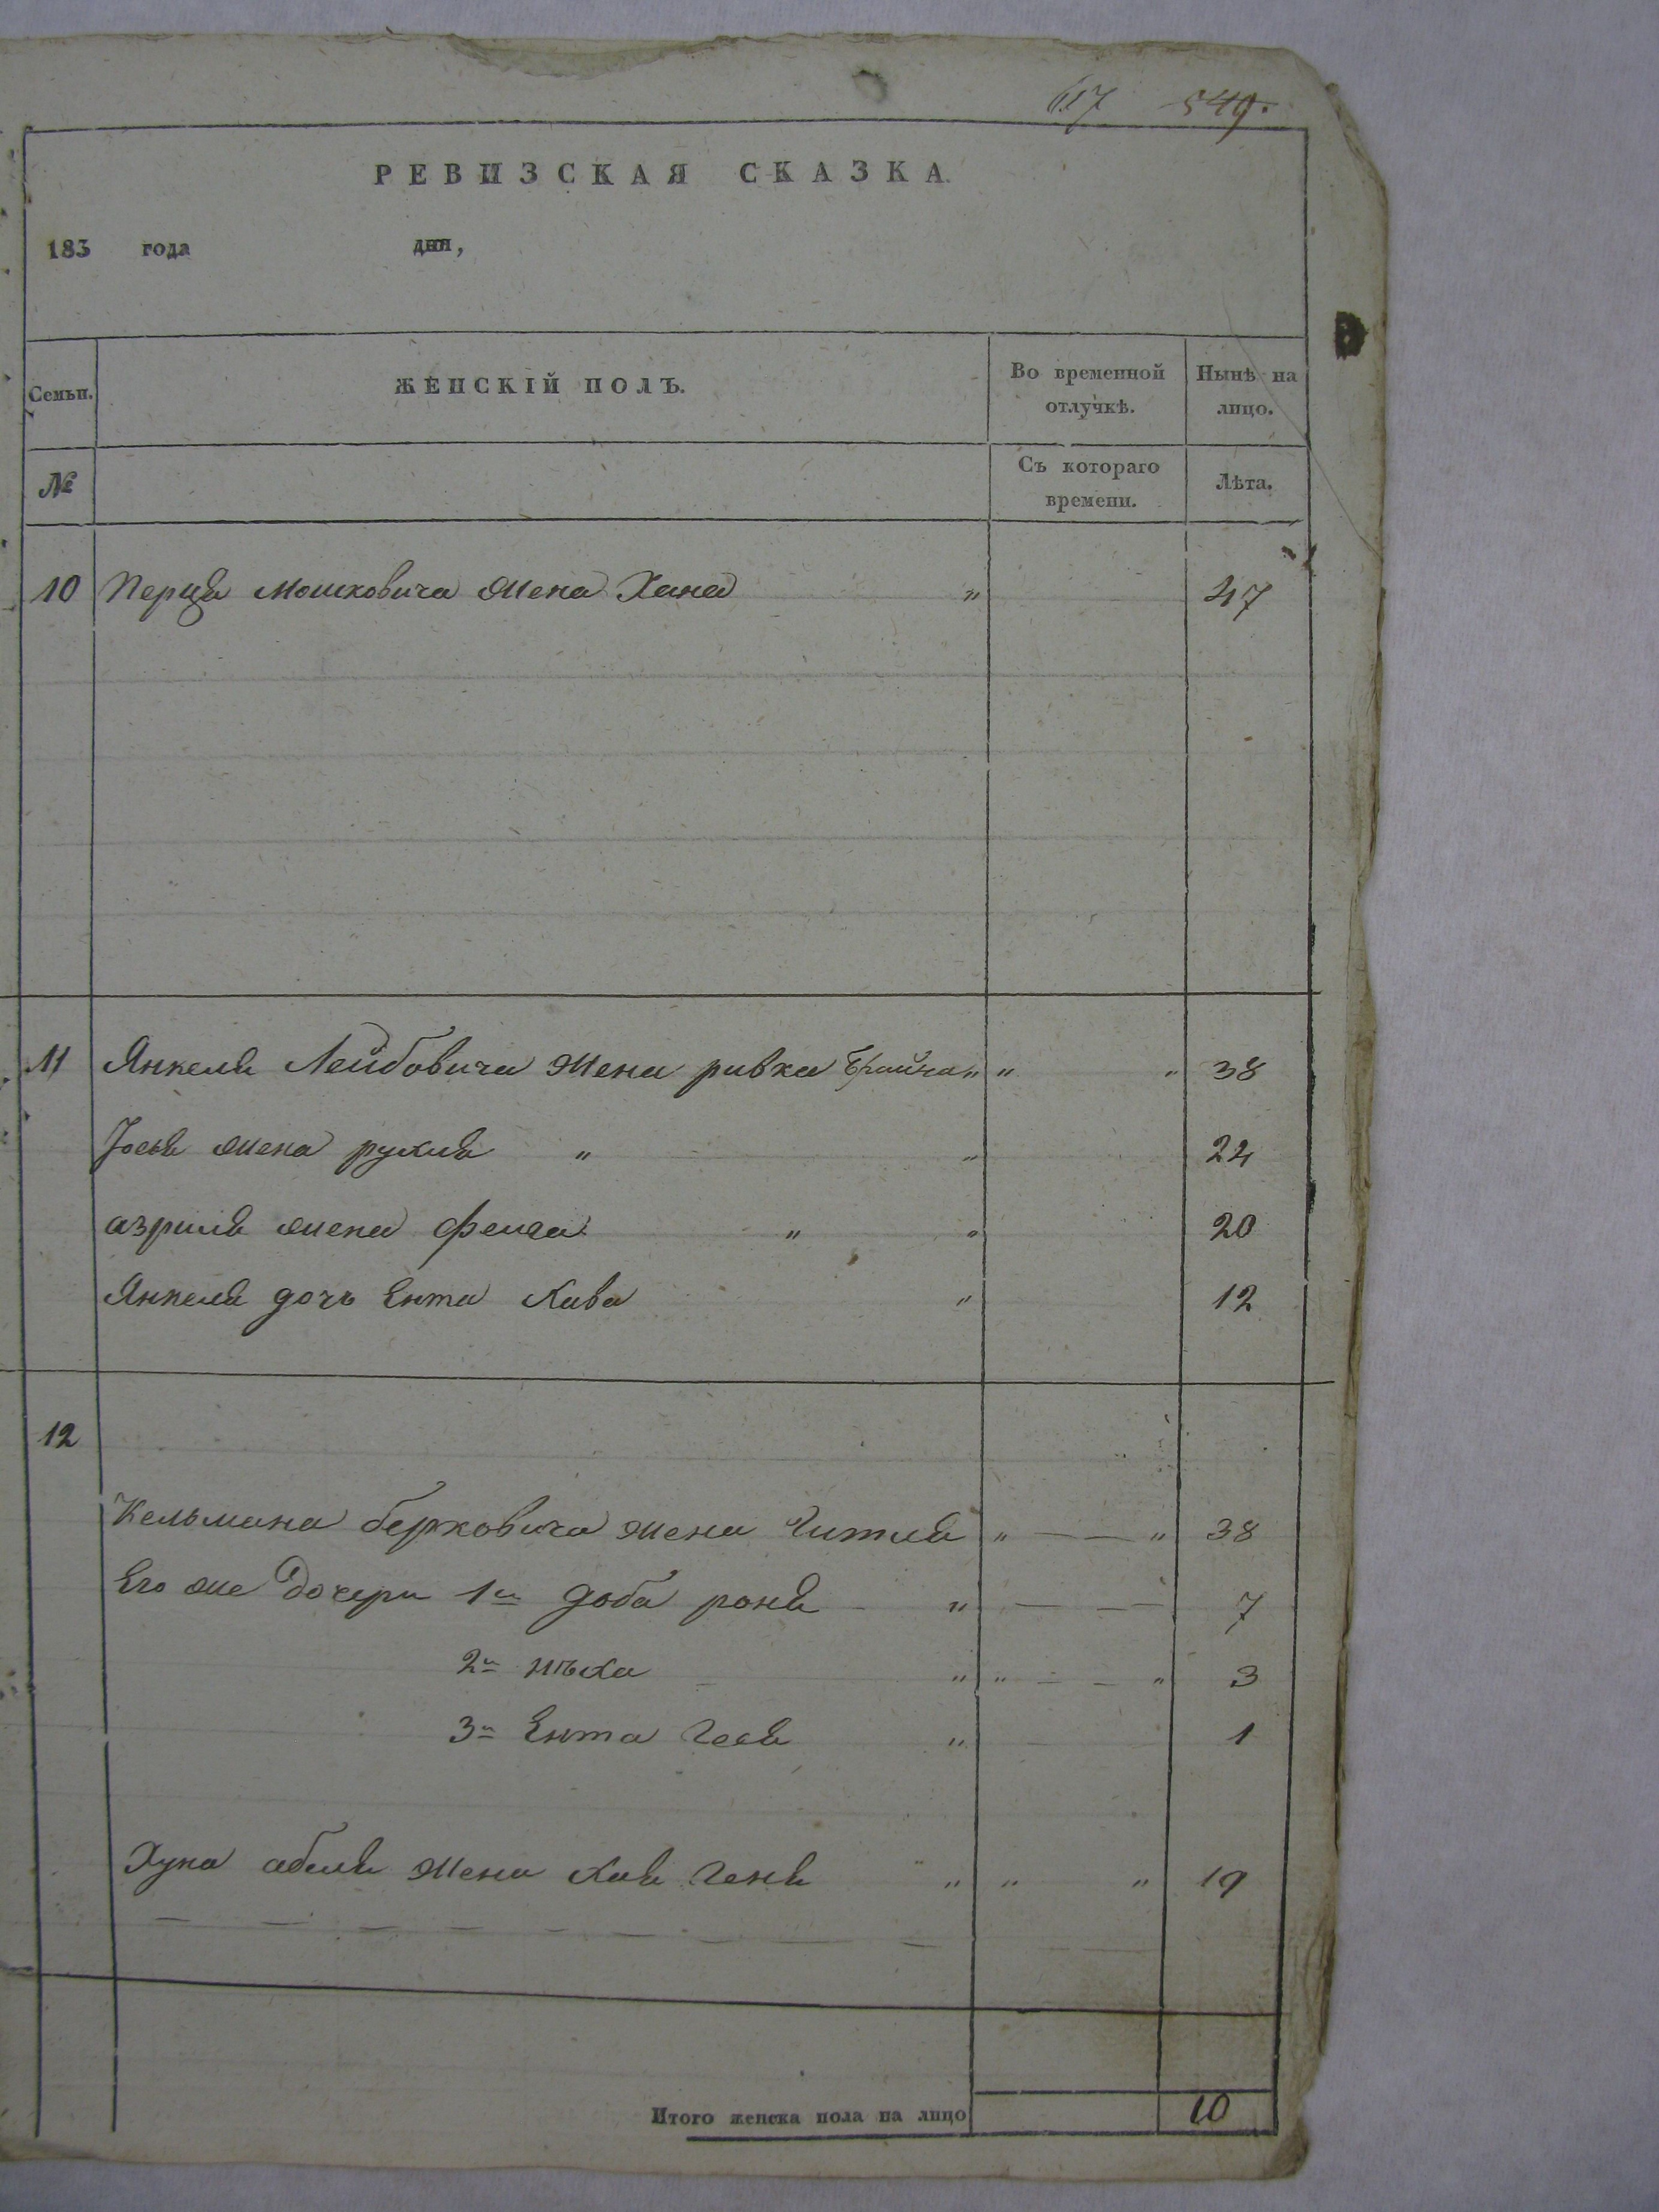 617 549.
РЕВИЗСКАЯ СКАЗКА
183 года дня,
Семьи. ЖЕНСКІЙ ПОЛЪ. Во временной отлучкѣ. Нынѣ на лицо.
№ Съ котораго времени. Лѣта.
10 Перца Мошковича жена Хана " 47
11 Янкеля Лейбовича жена ривка Брайна " " " 38
Іося жена рухля " " 24
азриля жена фейга " " 20
Янкеля дочь Ента Хава " 12
12
Кельмана берковича жена Гитля " — — " 38
Его же дочери 1я доба роня " — — — 7
2я " " — — " 3
3я Ента Геся " 1
Хуна абеля жена Хая Геня " " " 19
Итого женска пола на лицо 10